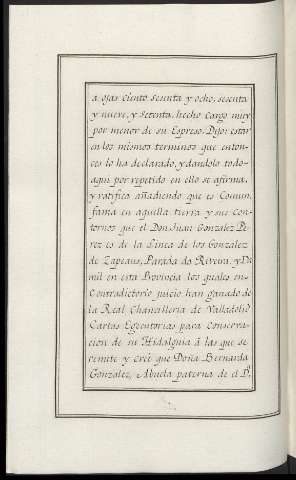 a ojas ciento sesenta y ocho, sesenta
y nueve, y Setenta, hecho cargo muy
por menor de su Expreso, Dijo: estar
en los mismos terminos que enton-
ces lo ha declarado, y dandolo todo-
aqui por repetido en ello se afirma,
y ratifica añadiendo que es Comun
fama en aquella tierra y sus con-
tornos que el Don Juan Gonzalez Pe-
rez es de la Linea de los Gonzalez
de Zapeaus, Parada da Riveira, y Da
mil en esta Provincia los quales en-
Contradictorio juicio han ganado de
la Real Chancilleria de Valladolid
Cartas Egecutorias para conserva-
cion de su Hidalguia á las que se
remite y creé que Doña Bernarda
Gonzalez, Abuela paterna de el Dn.